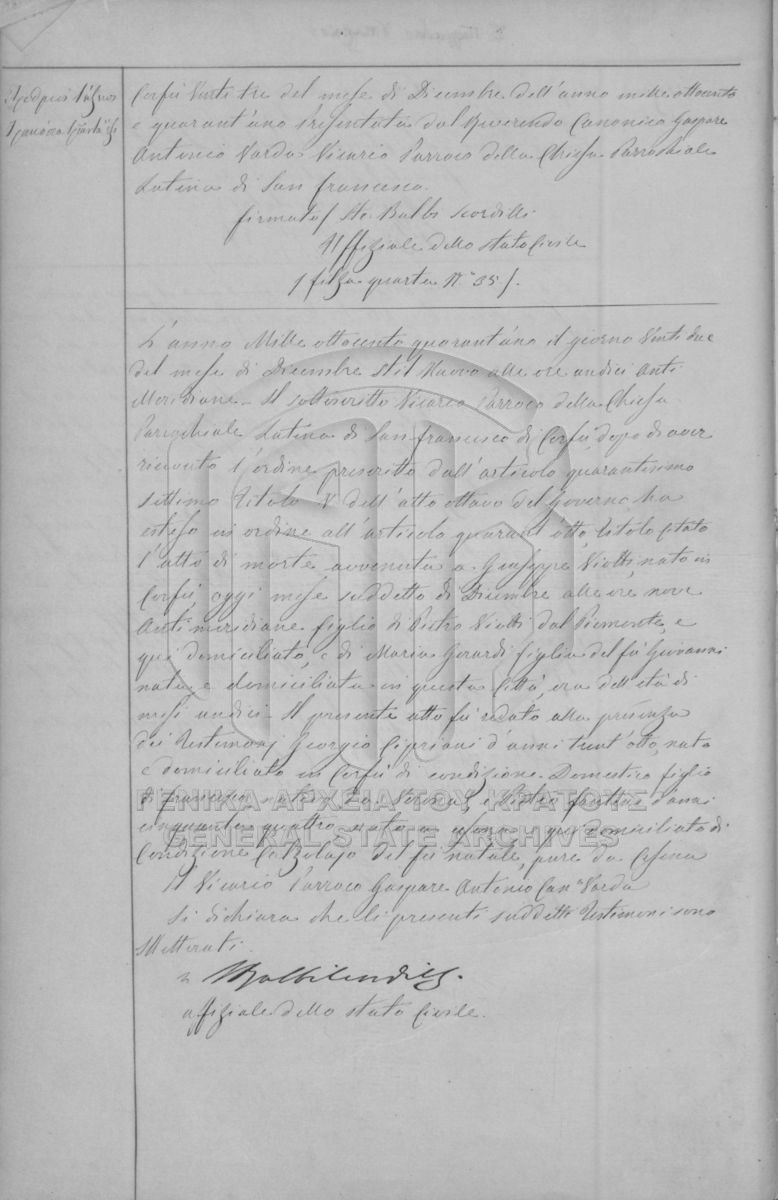 Corfù Venti tre del mese di Dicembre dell'anno mille ottocento
e quarant'uno presentata dal Reverendo Canonico Gaspare
Antonio Varda Vicario Parroco della Chiesa Parrochiale
Latina di San Francesco.
firmato/ Balbi Scordilli
Uffiziale dello stato Civile
/ filza quarta N° 35 /.
L'anno Mille ottocento quarant'uno il giorno Venti due
del mese di Dicembre Stil Nuovo alle ore undici Anti
Meridiane. Il sottoscritto Vicario Parroco della Chiesa
Parrochiale Latina di San Francesco di Corfù, dopo di aver
ricevuto l'ordine prescritto dall'articolo quarantesimo
settimo Titolo V dell'atto ottavo del Governo ha
esteso in ordine all'articolo quarant'otto, Titolo citato
l'atto di morte avvenuta a Giuseppe Viotti, nato in
Corfù oggi mese suddetto di Dicembre alle ore nove
Antimeridiane figlio di Pietro Viotti dal Piemonte, e
qui domiciliato, e di Maria Gerardi figlia del fù Giovanni
nata e domiciliata in questa Città, era dell'età di
mesi undici. Il presente atto fù redato alla presenza
dei Testimonj Georgio Cipriani d'anni trent'otto, nato
e domiciliato in Corfù di condizione Domestico figlio
di Francesco e Pietro d'anni
cinquanta quattro, nato a Cesena e qui domiciliato di
Condizione Calzolajo del fù Natale, pure da Cesena
Il Vicario Parroco Gaspare Antonio Can° Varda
Si dichiara che li presenti suddetti Testimoni sono
Illetterati.
uffiziale dello stato Civile.
ΓΕΝΙΚΑ ΑΡΧΕΙΑ ΤΟΥ ΚΡΑΤΟΥΣ
GENERAL STATE ARCHIVES